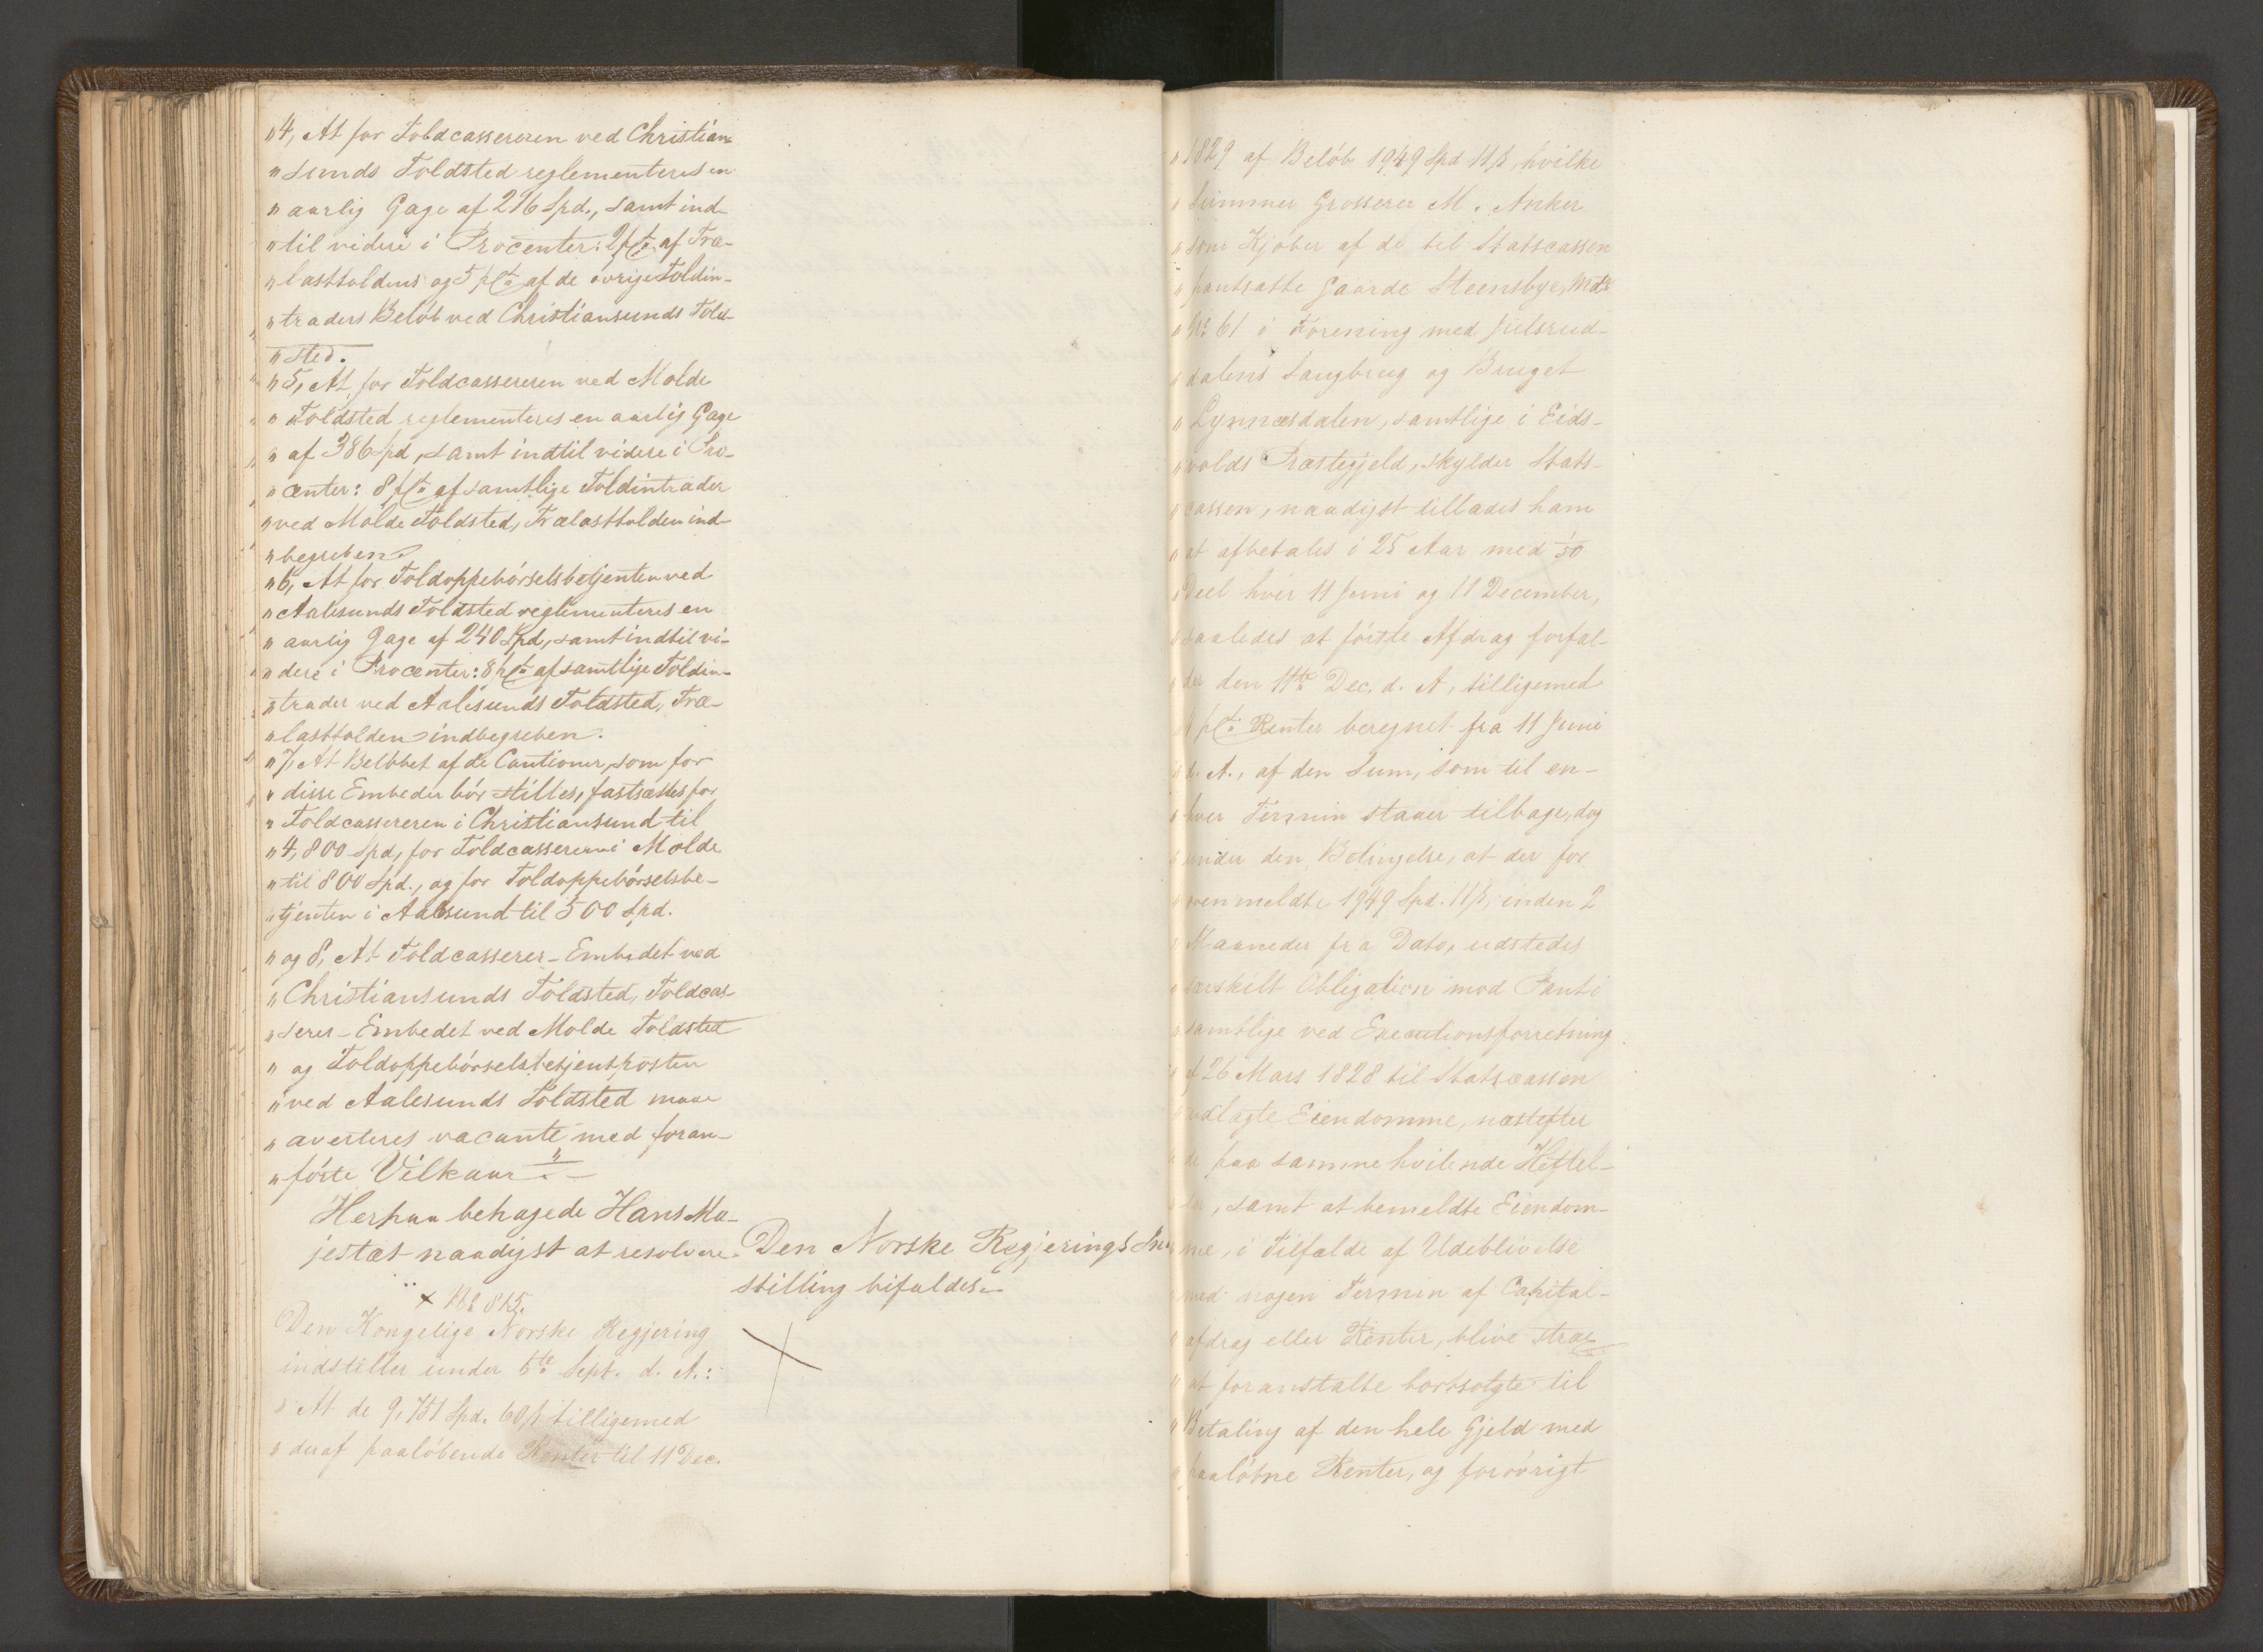 "4, At for Toldcassereren ved Christian-
"sunds Toldsted reglementeres en
"aarlig Gage af 216 Spd., samt ind-
"til videre i Procenter: 2 pCt. af Træ-
"lasttoldens og 5 pCt. af de øvrige Toldin-
"traders Beløb ved Christiansunds Told-
"sted.
"5, At for Toldcassereren ved Molde
"Toldsted reglementeres en aarlig Gage
"af 386 Spd, samt indtil videre i Pro-
"center: 8 pCt. af samtlige Toldintrader
"ved Molde Toldsted, Trælasttolden ind-
"begreben.
"6, At for Toldoppebørselsbetjenten ved
"Aalesunds Toldsted reglementeres en
"aarlig Gage af 240 Spd, samt indtil vi-
"dere i Procenter: 8 pCt. af samtlige Toldin-
"trader ved Aalesunds Toldsted, Træ-
"lasttolden indbegreben.
"7, At Beløbet af de Cautioner, som for
"disse Embeder bør stilles, fastsættes for
"Toldcassereren i Christiansund til
"4,800 Spd, for Toldcassereren i Molde
"til 800 Spd., og for Toldoppebørselsbe-
"tjenten i Aalesund til 500 Spd.
"og 8, At Toldcasserer-Embedet ved
"Christiansunds Toldsted, Toldcas-
"serer-Embedet ved Molde Toldsted
"og Toldoppebørselsbetjentposten
"ved Aalesunds Toldsted maae
"averteres vacante med foran-
"førte Vilkaar."
Herpaa behagede Hans Ma-
jestæt naadigst at resolvere:
Den Norske Regjerings In-
stilling bifaldes.
+ 815.
Den Kongelige Norske Regjering
indstiller under 5te Sept. d. A.:
"At de 9,751 Spd. 60 β tilligemed
"deraf paaløbende Renter til 11 Dec.
"1829 af Beløb 1949 Spd 11 β, hvilke
"Summer Grosserer M. Anker
"som Kjøber af de til Statscassen
"pantsatte Gaarde Steensbye, Mat.
"No 61 i Forening med Julsrud-
"dalens Saugbrug og Bruget
"Lynnæsdalen, samtlige i Eids-
"volds Præstegjeld, skylder Stats-
"cassen, naadigst tillades ham
"at afbetales i 25 Aar med 1/50
"Deel hver 11 Juni og 11 December,
"saaledes at første Afdrag forfal-
"der den 11te Dec. d. A, tilligemed
"4 pCt. Renter beregnet fra 11 Juni
"d. A., af den Sum, som til en-
"hver Termin staaer tilbage, dog
"under den Betingelse, at der for
"ovenmeldte 1949 Spd. 11 β, inden 2
"Maaneder fra Dato, udstedes
"særskilt Obligation mod Pant i
"samtlige ved Executionsforretning
"af 26 Mars 1828 til Statscassen
"udlagte Eiendomme, næstefter
"de paa samme hvilende Heftel-
"ser, samt at bemeldte Eiendom-
"me, i Tilfælde af Udeblivelse
"med nogen Termin af Capital-
"afdrag eller Renter, blive strax
"at foranstalte bortsolgte til
"Betaling af den hele Gjeld med
"paaløbne Renter, og forøvrigt